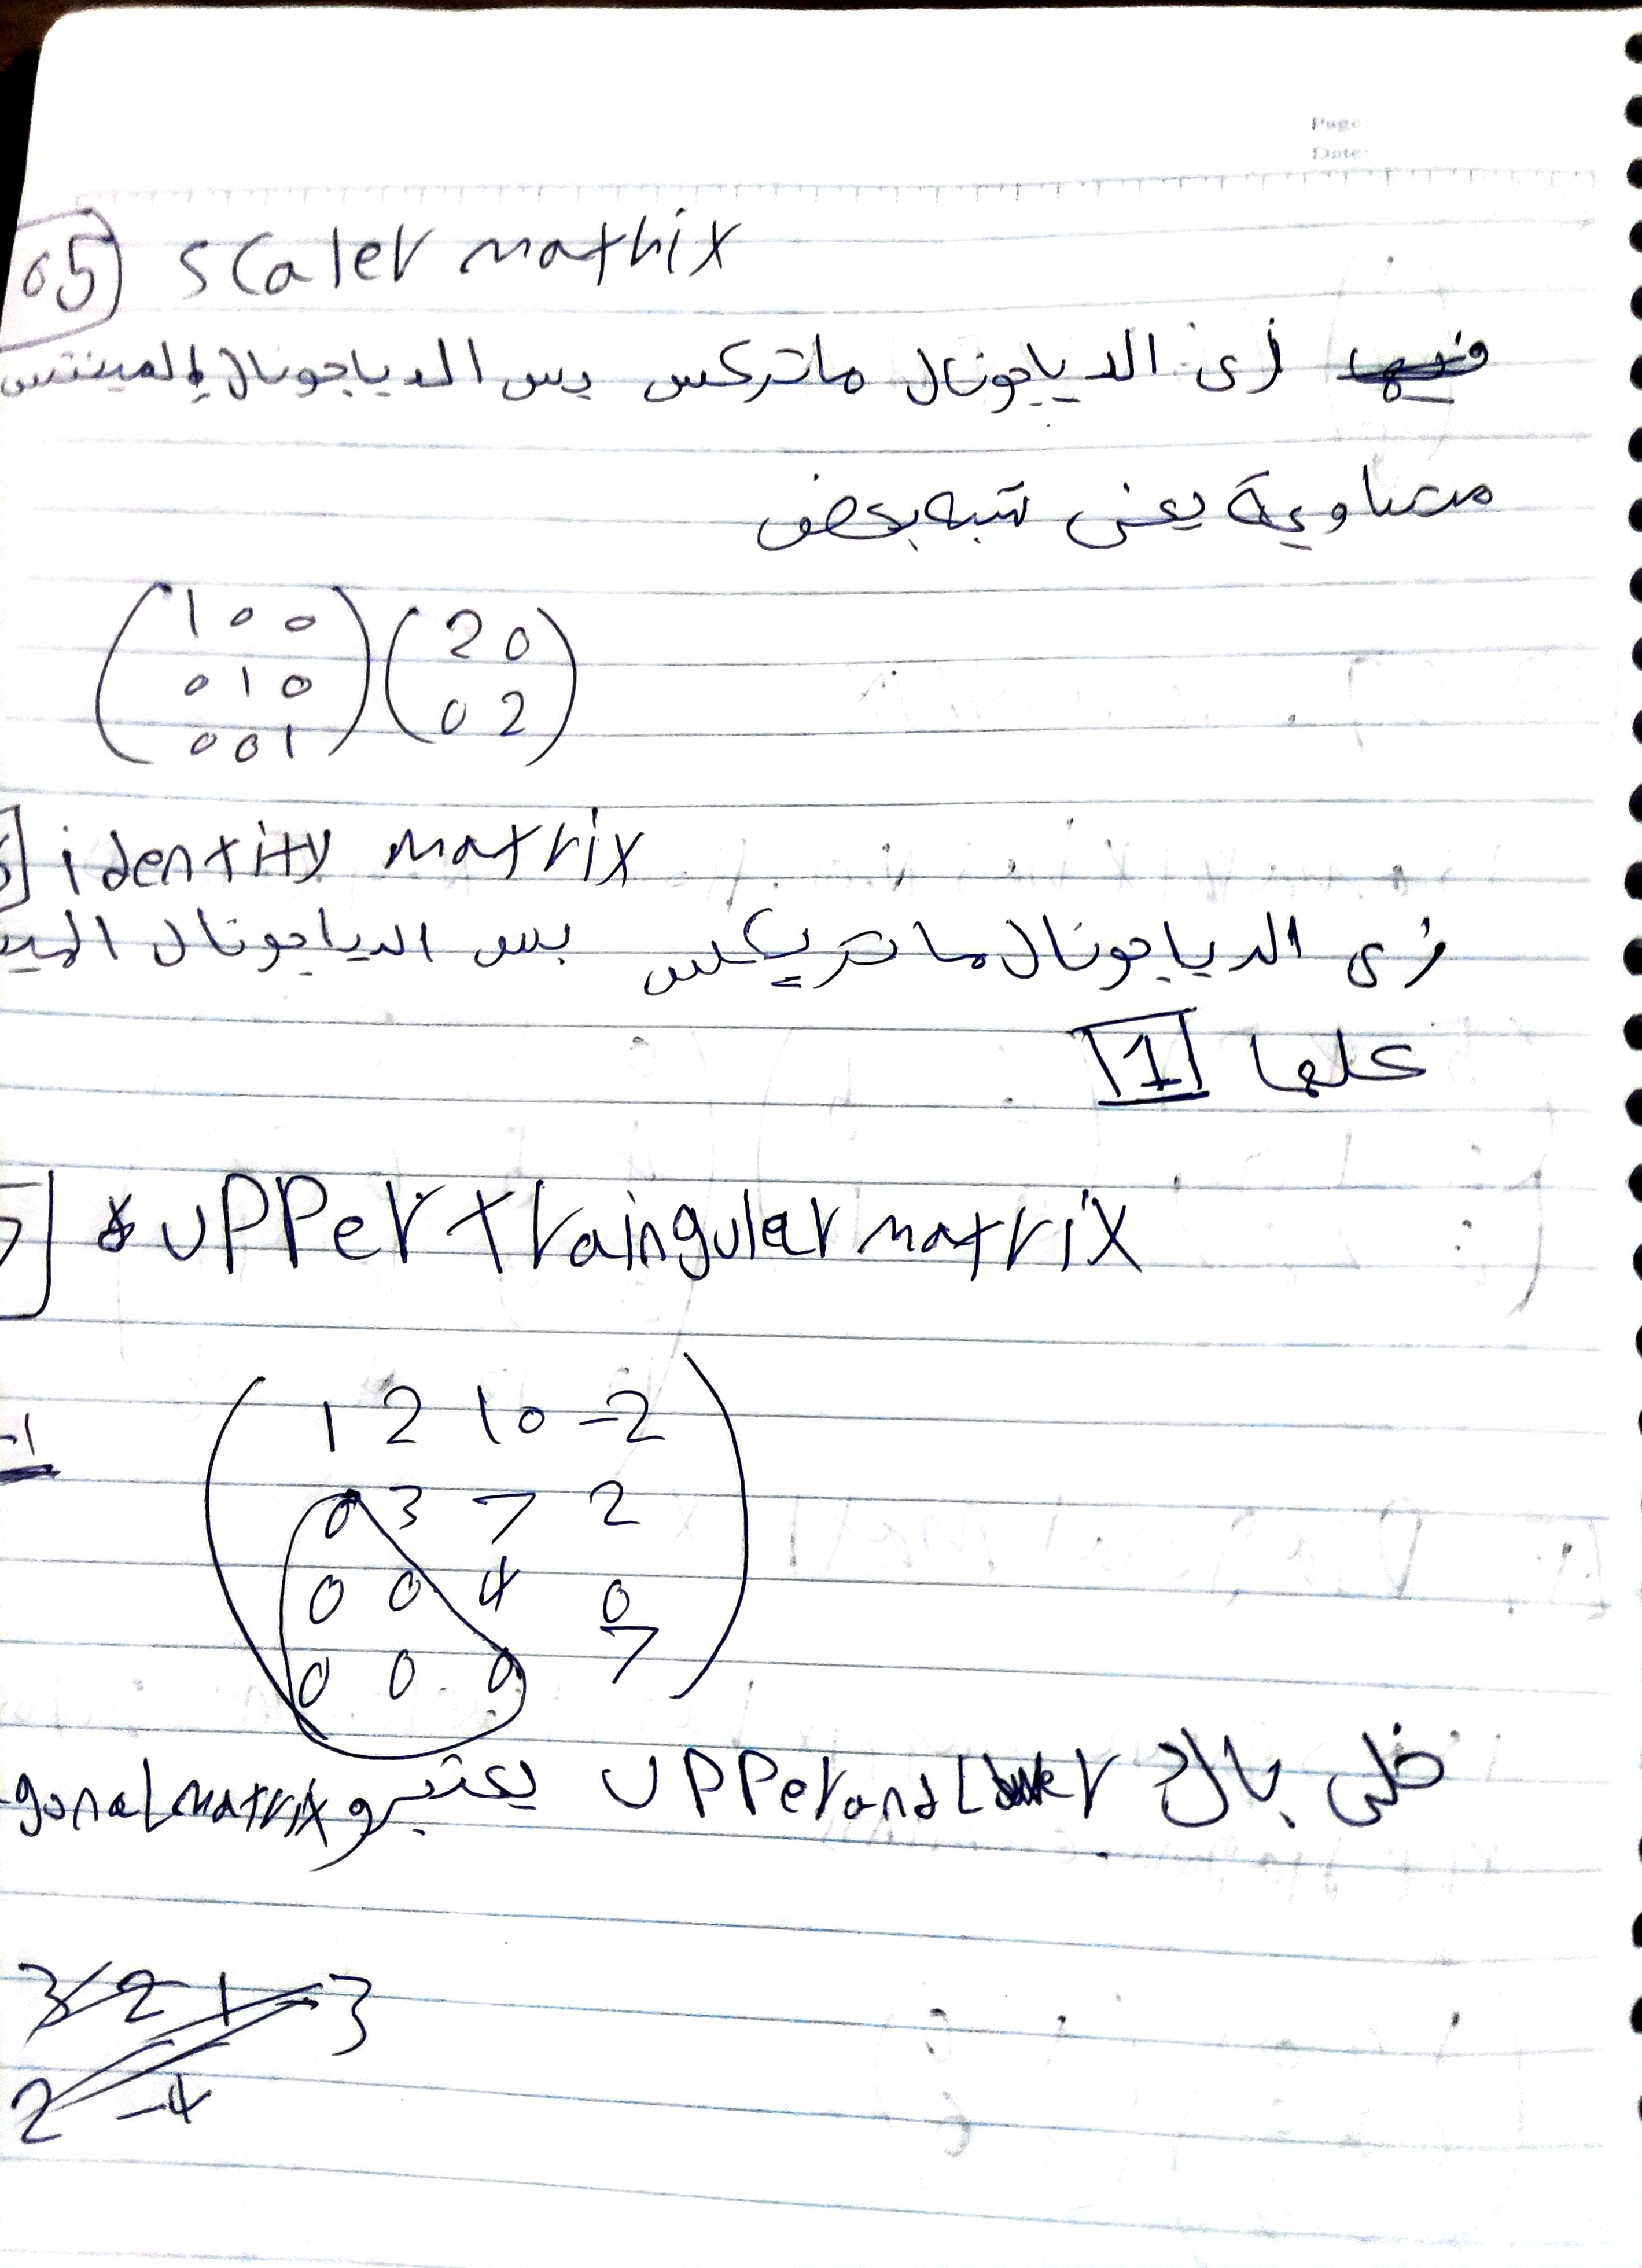 Page:
Date:
05 scaler matrix
زى الدياجونال ماتركس بس الدياجونال إلمينتس
متساوية يعنى شبه بعض
1 0 0   2 0
0 1 0   0 2
0 0 1
identity matrix
زى الدياجونال ماتريكس بس الدياجونال
كلها 1
upper traingular matrix
1 2 10 -2
0 3 7 2
0 0 4 0
0 0 0 7
خلى بالك upper and Lower يعتبرو gonal matrix
3 2 1 3
2 -4